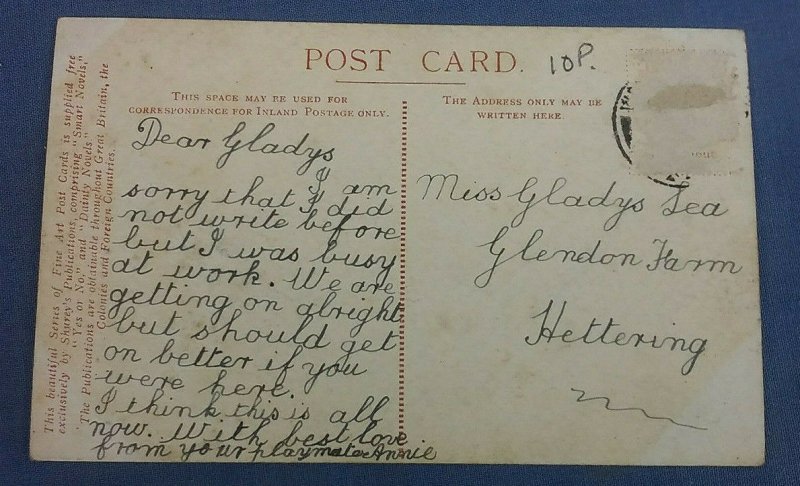 POST CARD.
10P.
THIS SPACE MAY BE USED FOR
CORRESPONDENCE FOR INLAND POSTAGE ONLY.
THE ADDRESS ONLY MAY BE
WRITTEN HERE.
This beautiful Series of Fine Art Post Cards is supplied free
exclusively by Shurey's Publications, comprising "Smart Novels,"
"Yes or No," and "Dainty Novels."
The Publications are obtainable throughout Great Britain, the
Colonies and Foreign Countries.
Dear Gladys
I am
sorry that I did
not write before
but I was busy
at work. We are
getting on alright
but should get
on better if you
were here.
I think this is all
now. With best love
from your playmate Annie
Miss Gladys Lea
Glendon Farm
Kettering